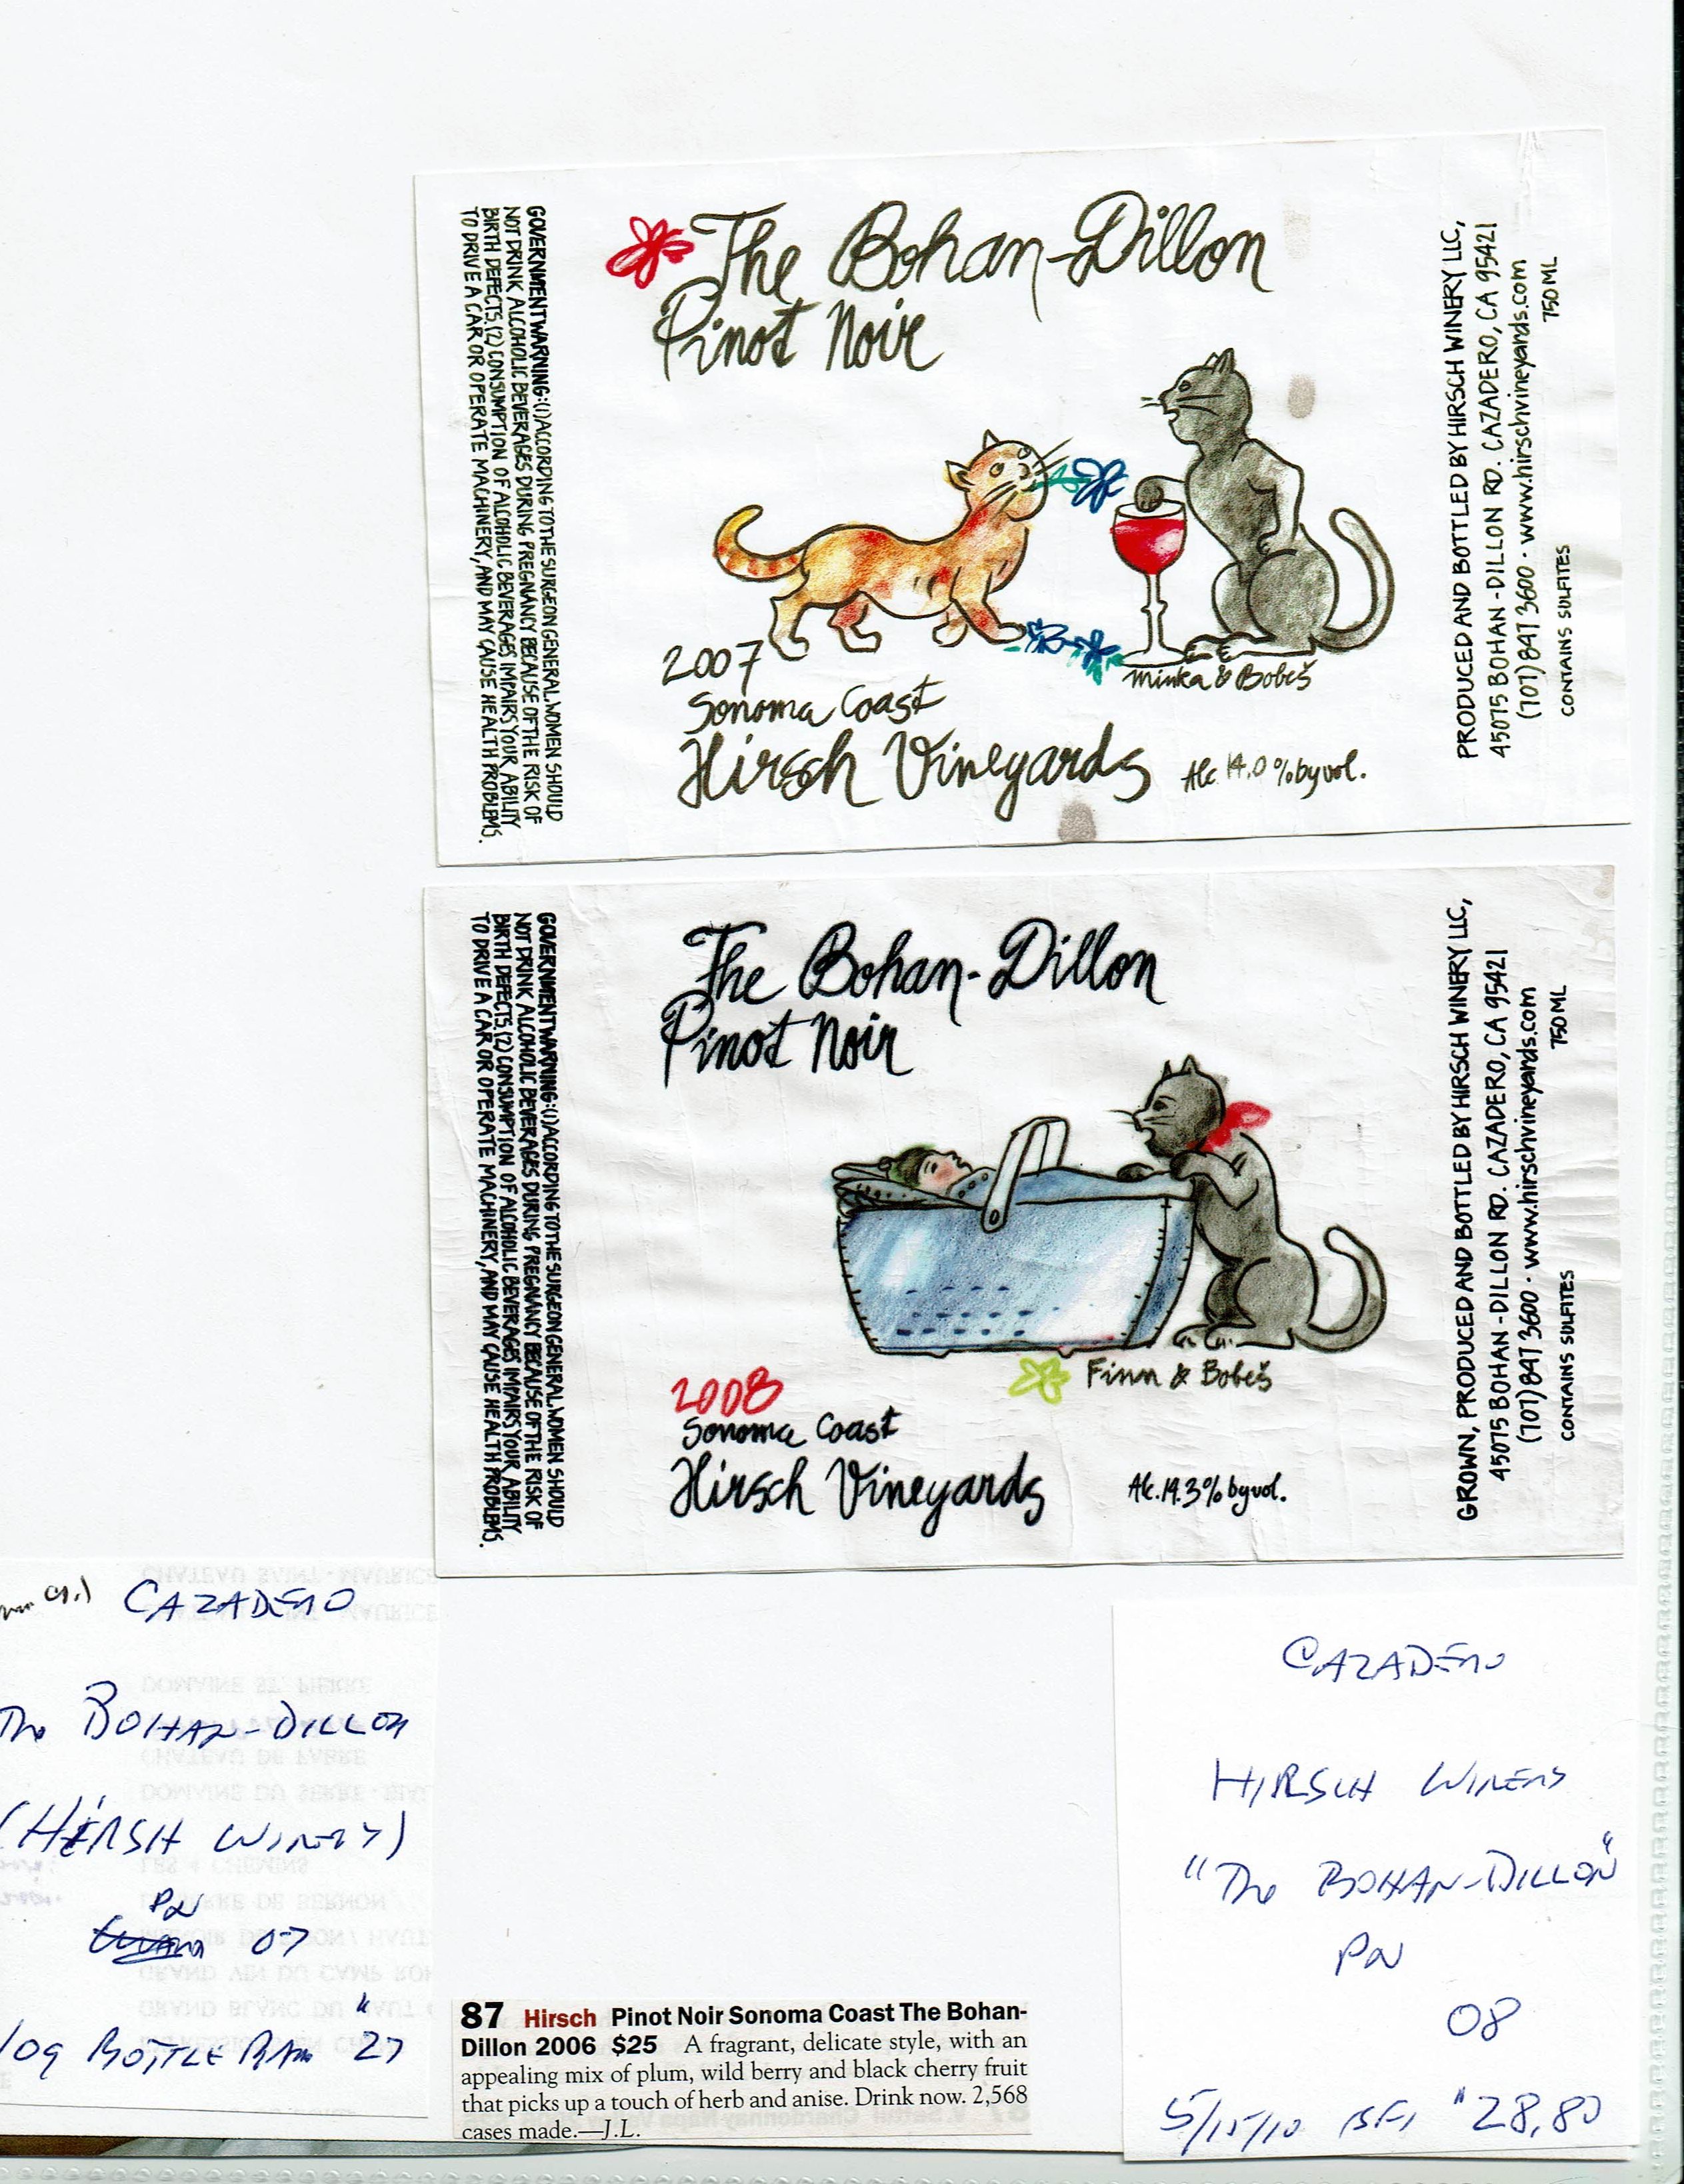 GOVERNMENT WARNING: (1) ACCORDING TO THE SURGEON GENERAL, WOMEN SHOULD
NOT DRINK ALCOHOLIC BEVERAGES DURING PREGNANCY BECAUSE OF THE RISK OF
BIRTH DEFECTS. (2) CONSUMPTION OF ALCOHOLIC BEVERAGES IMPAIRS YOUR ABILITY
TO DRIVE A CAR OR OPERATE MACHINERY, AND MAY CAUSE HEALTH PROBLEMS.
The Bohan-Dillon
Pinot Noir
2007
Minka & Bobeš
Sonoma Coast
Hirsch Vineyards Alc. 14.0% by vol.
PRODUCED AND BOTTLED BY HIRSCH WINERY LLC,
45075 BOHAN-DILLON RD. CAZADERO, CA 95421
(707) 847 3600 · www.hirschvineyards.com
CONTAINS SULFITES 750 ML
GOVERNMENT WARNING: (1) ACCORDING TO THE SURGEON GENERAL, WOMEN SHOULD
NOT DRINK ALCOHOLIC BEVERAGES DURING PREGNANCY BECAUSE OF THE RISK OF
BIRTH DEFECTS. (2) CONSUMPTION OF ALCOHOLIC BEVERAGES IMPAIRS YOUR ABILITY
TO DRIVE A CAR OR OPERATE MACHINERY, AND MAY CAUSE HEALTH PROBLEMS.
The Bohan-Dillon
Pinot Noir
Finn & Bobeš
2008
Sonoma Coast
Hirsch Vineyards Alc. 14.3% by vol.
GROWN, PRODUCED AND BOTTLED BY HIRSCH WINERY LLC,
45075 BOHAN-DILLON RD. CAZADERO, CA 95421
(707) 847 3600 · www.hirschvineyards.com
CONTAINS SULFITES 750 ML
CAZADERO
The BOHAN-DILLON
(HIRSH WINERY)
PN
07
/09 BOTTLE BARN "27
87 Hirsch Pinot Noir Sonoma Coast The Bohan-
Dillon 2006 $25 A fragrant, delicate style, with an
appealing mix of plum, wild berry and black cherry fruit
that picks up a touch of herb and anise. Drink now. 2,568
cases made.—J.L.
CAZADERO
HIRSCH WINERY
"The BOHAN-DILLON"
PN
08
5/15/10 "28.80